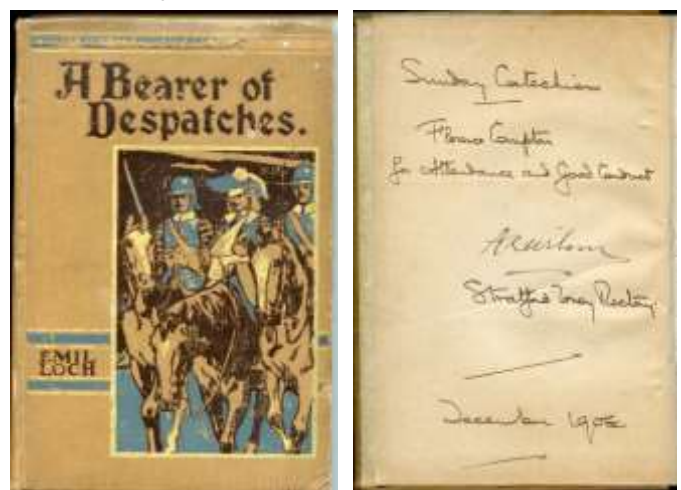 A Bearer of
Despatches.
EMIL
LOCH
Sunday Catechism
Florence Compton
for Attendance and Good Conduct
Stratford Toney Rectory.
December